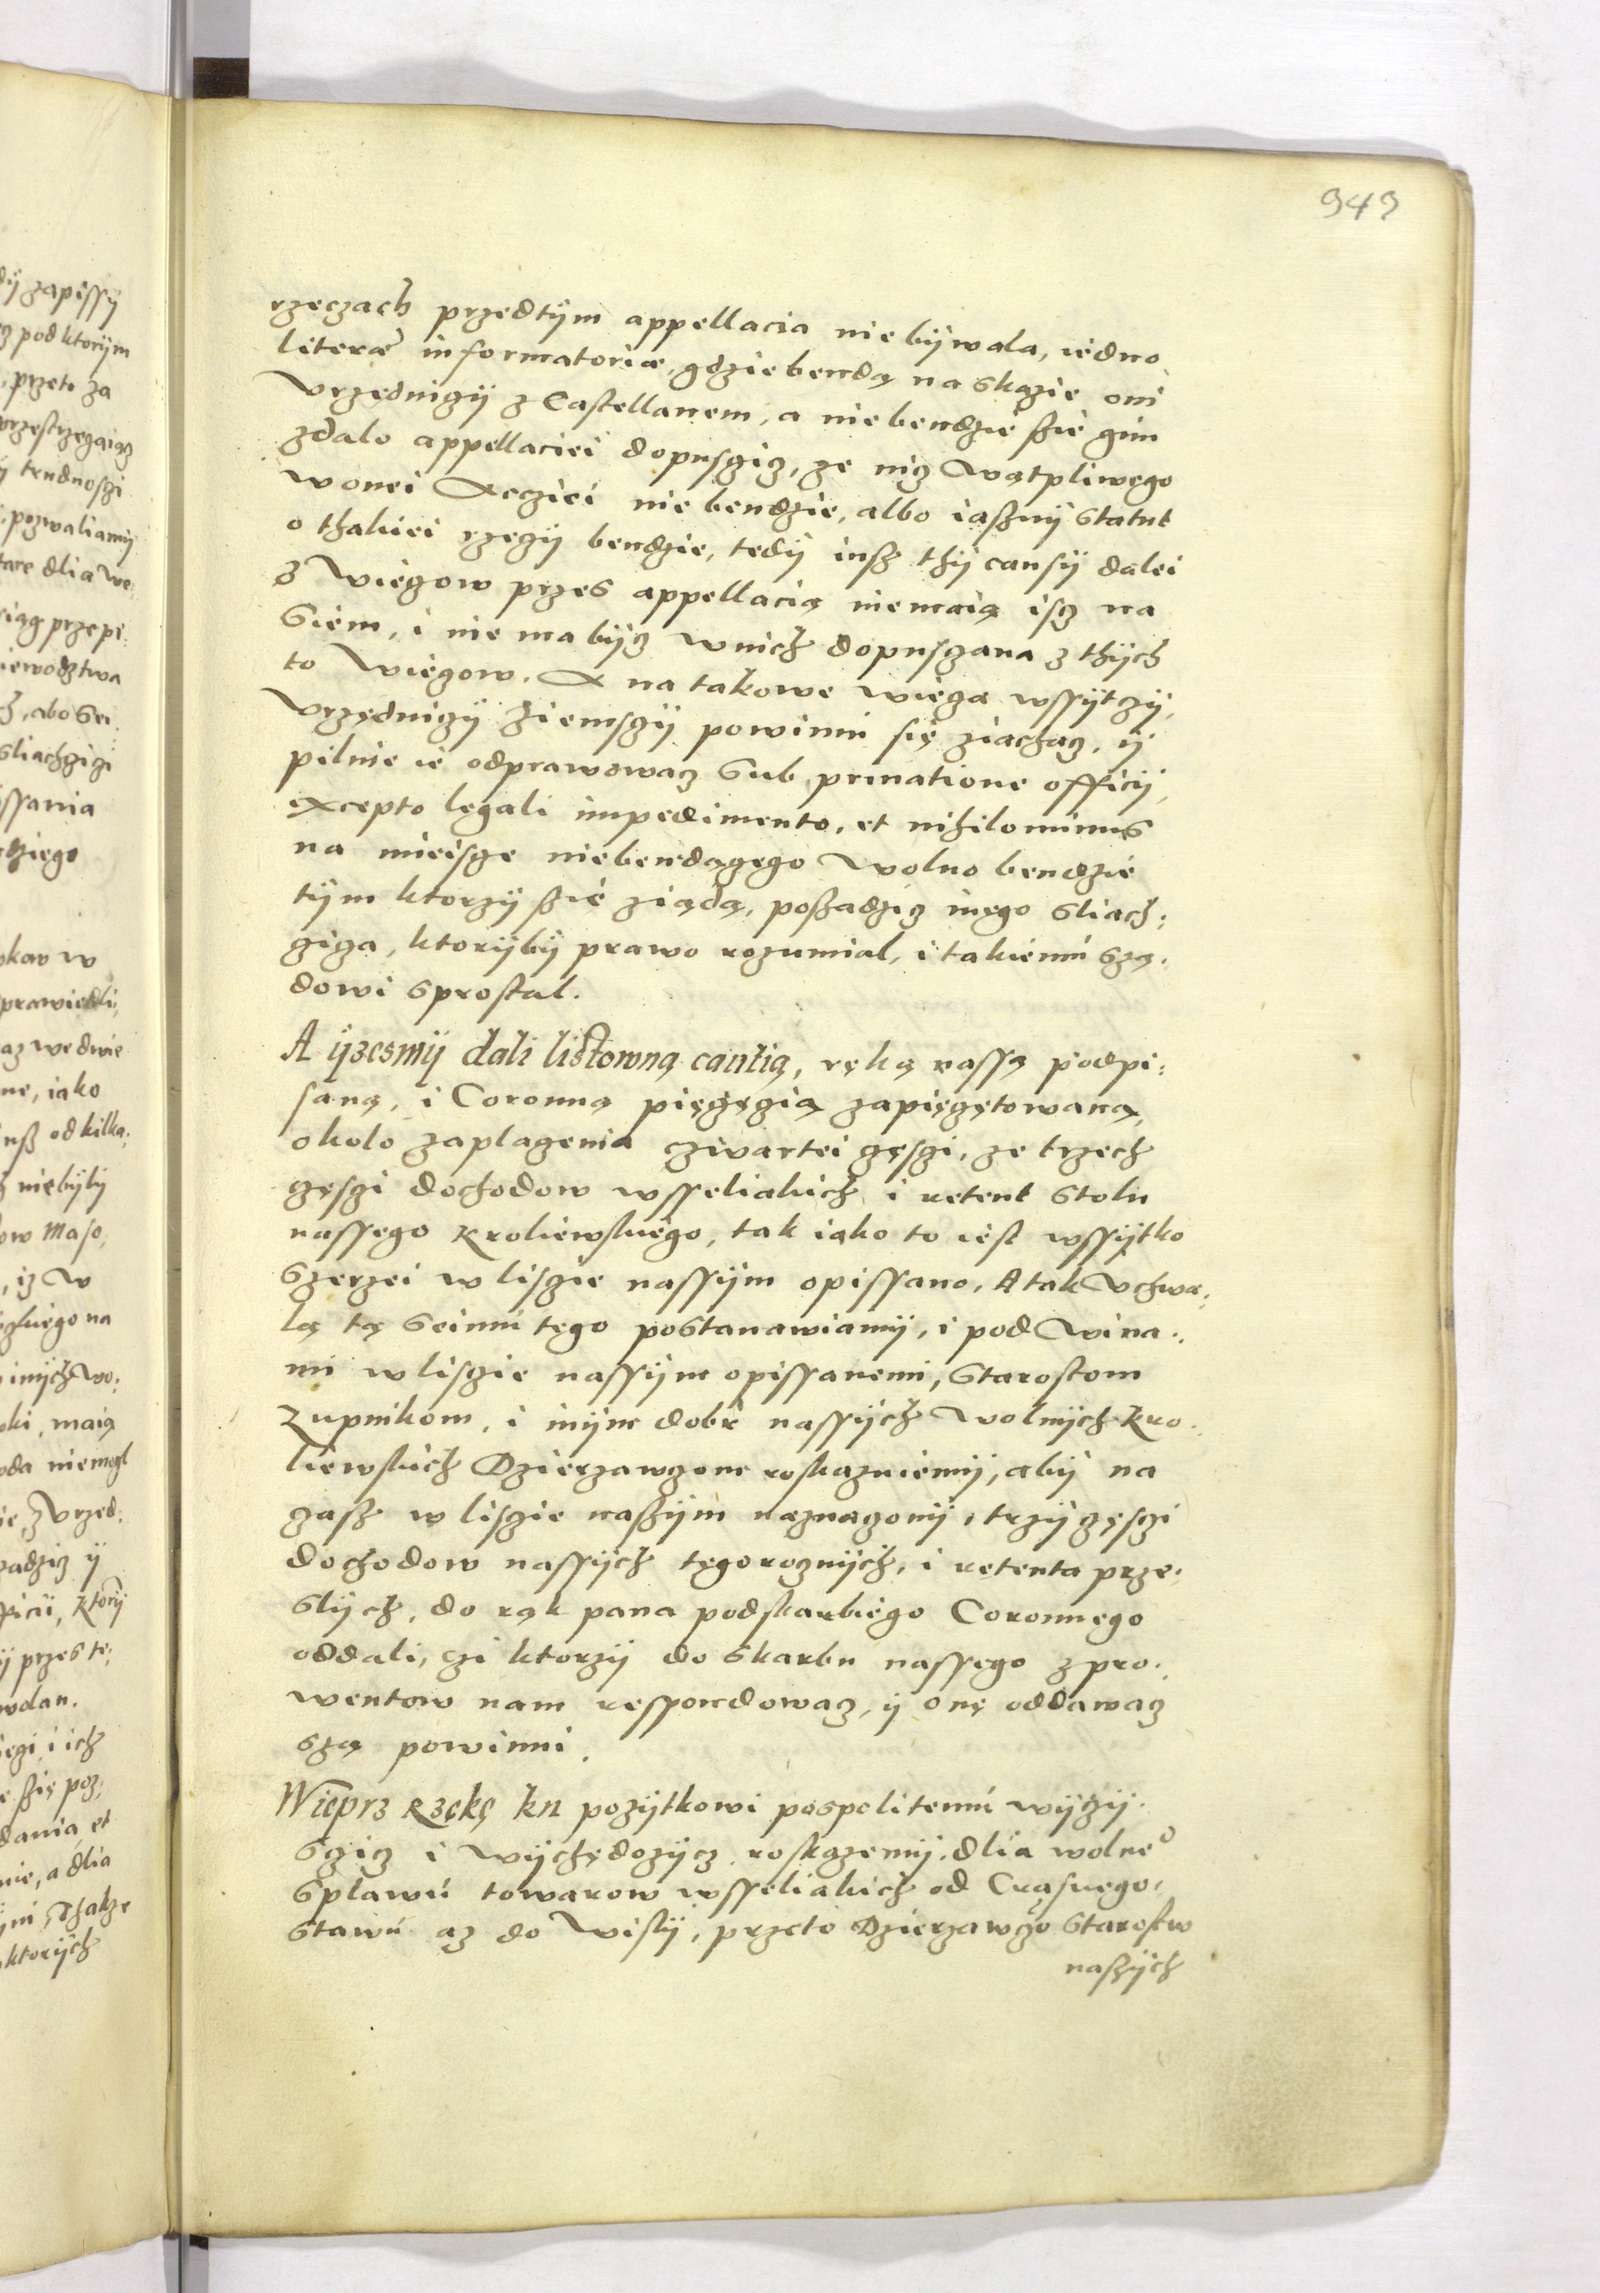 949
rzeczach przedtÿm appellacia nie bÿwala, iedno
literæ informatoriæ, gdzie bendą na skazie oni
Vrzędniczÿ z Castellanem, a nie bendzie ßię gim
zdalo appellaciei dopusczicz, ze nicz wątpliwego
w onei Recziei nie bendzie, albo iaßnÿ statut
o thakiei rzeczÿ bendzie, tedÿ iusz thÿ causÿ dalei
z wieczow przes appellacią nie maią iscz na
Siem, i nie ma bÿcz w nich dopusczana z thÿch
to wieczow. A na takowe wiecza wssÿtczÿ
Vrzędniczÿ ziemsczÿ powinni się ziachacz, ÿ
pilnie ie odprawowacz sub priuatione officÿ,
excepto legali impedimento, et nihilominus
na mieisce niebendączego wolno bendzie
tÿm ktorzÿ ßię ziadą, poßadzicz inęgo sliach-
cziza, ktorÿbÿ prawo rozumial, i takiemu szą-
dowi sprostal.
A ÿzesmÿ dali listowną cautią, ręką nassą podpi-
saną, i Coronną pięczęczią zapięczętowaną,
okolo zaplacenia czwartei częsczi, ze trzech
częsczi dochodow wsseliakich i retent stolu
nassego Kroliewskiego, tak iako to iest wssÿtko
szerzei w lisczie nassÿm opissano, A tak Vchwa-
lą tą Seimu tęgo postanawiamÿ, i pod wina-
mi w lisczie nassÿm opissanemi, Starostom
Zupnikom, i inÿm dobr nassÿch wolnÿch Kro-
liewskich Dzierzawczom roskazuiemÿ, abÿ na
czasz w lisczie naszÿm naznaczonÿ, trzÿ częsczi
dochodow nassÿch tęgorocznÿch, i retenta prze-
slÿch, do rąk pana podskarbiego Coronnego
oddali, czi ktorzÿ do skarbu nassęgo z pro-
wentow nam respondowacz, ÿ onę oddawacz
szą powinni.
Wieprz Rzekę ku pozÿtkowi pospolitemu wÿczÿ-
sczicz i wÿchędozÿcz roskazemÿ, dlia wolne°
splawu towarow wsseliakich od Crasnego
stawu az do Wislÿ, przeto Dzierzawczo Starostw
naszÿch